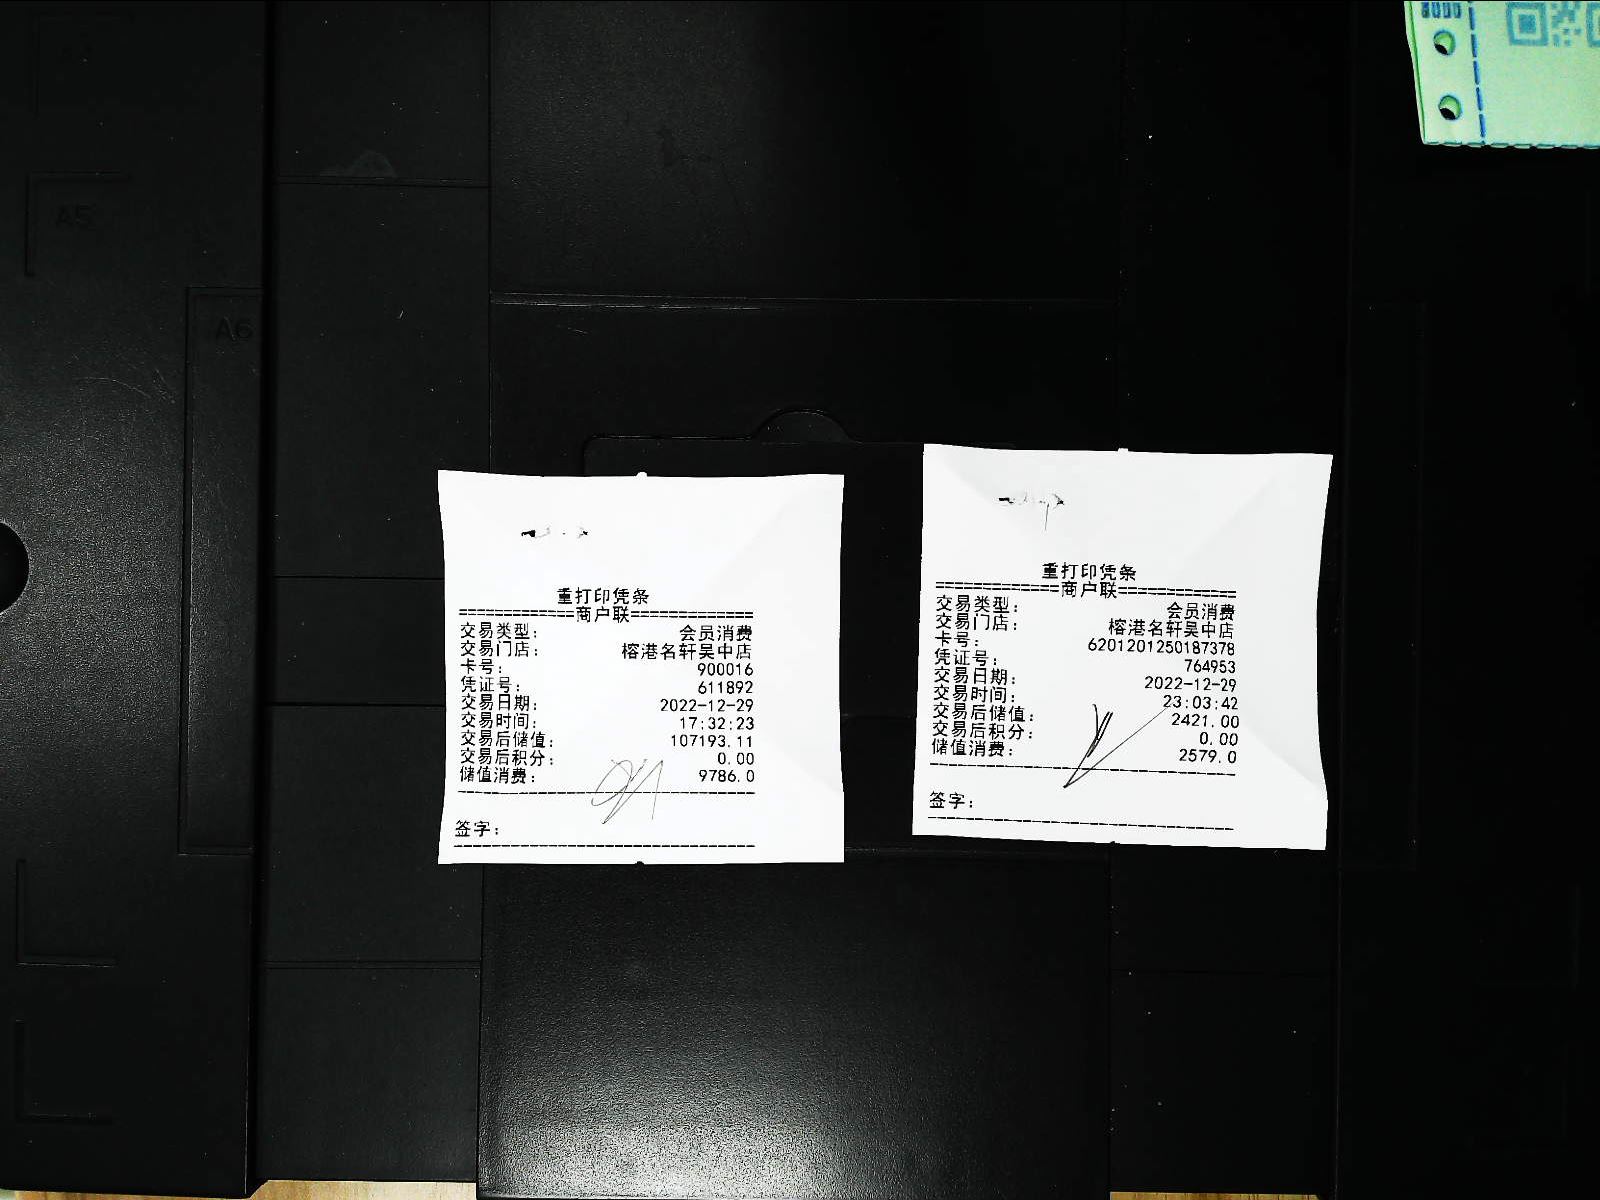 A5
A6
重打印凭条
============商户联=============
交易类型: 会员消费
交易门店: 榕港名轩吴中店
卡号: 900016
凭证号: 611892
交易日期: 2022-12-29
交易时间: 17:32:23
交易后储值: 107193.11
交易后积分: 0.00
储值消费: 9786.0
签字:
重打印凭条
=============商户联============
交易类型: 会员消费
交易门店: 榕港名轩吴中店
卡号: 6201201250187378
凭证号: 764953
交易日期: 2022-12-29
交易时间: 23:03:42
交易后储值: 2421.00
交易后积分: 0.00
储值消费: 2579.0
签字: